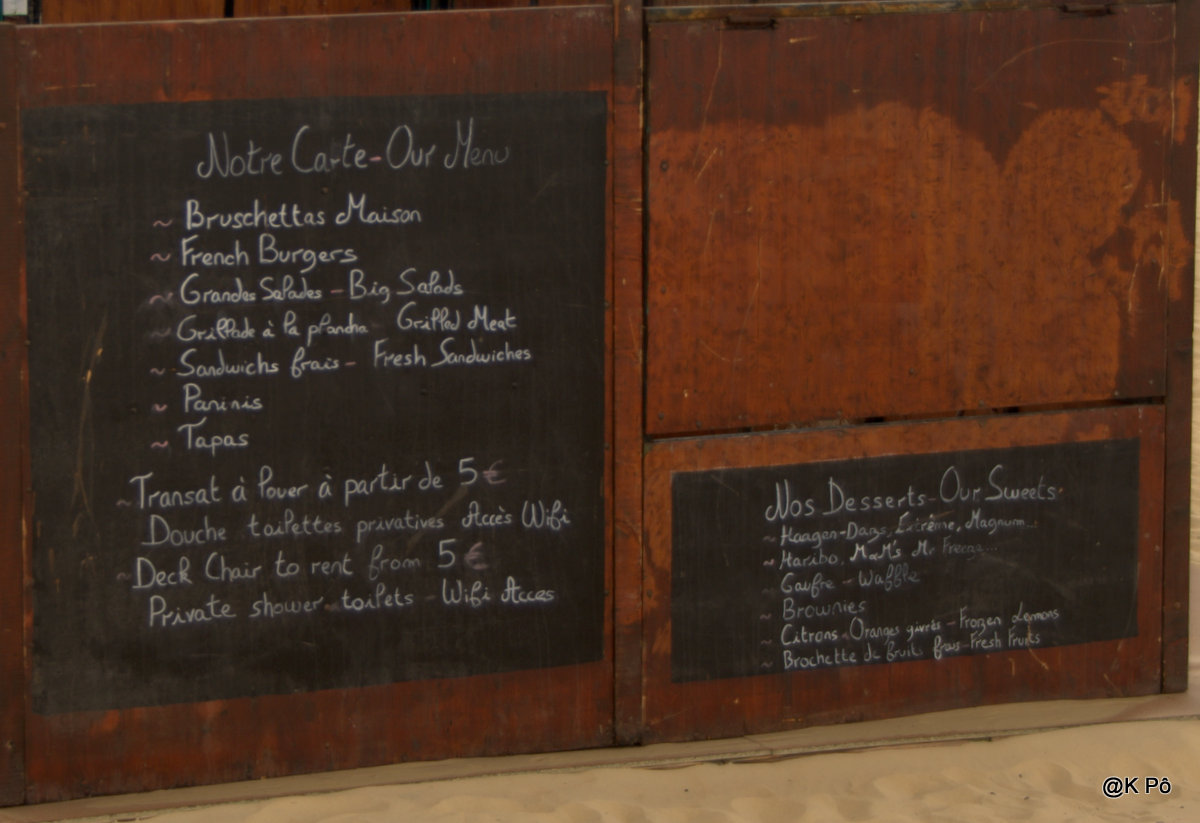 Notre Carte - Our Menu
~ Bruschettas Maison
~ French Burgers
~ Grandes Salades - Big Salads
~ Grillade à la plancha Grilled Meat
~ Sandwichs frais - Fresh Sandwiches
~ Paninis
~ Tapas
~ Transat à louer à partir de 5 €
Douche toilettes privatives Accès Wifi
~ Deck Chair to rent from 5 €
Private shower - toilets - Wifi Acces
Nos Desserts - Our Sweets
~ Haagen-Dazs, Extrême, Magnum...
~ Haribo, M&M's Mr Freeze...
~ Gaufre - Waffle
~ Brownies
~ Citrons - Oranges givrés - Frozen Lemons
~ Brochette de fruits frais - Fresh Fruits
@K Pô